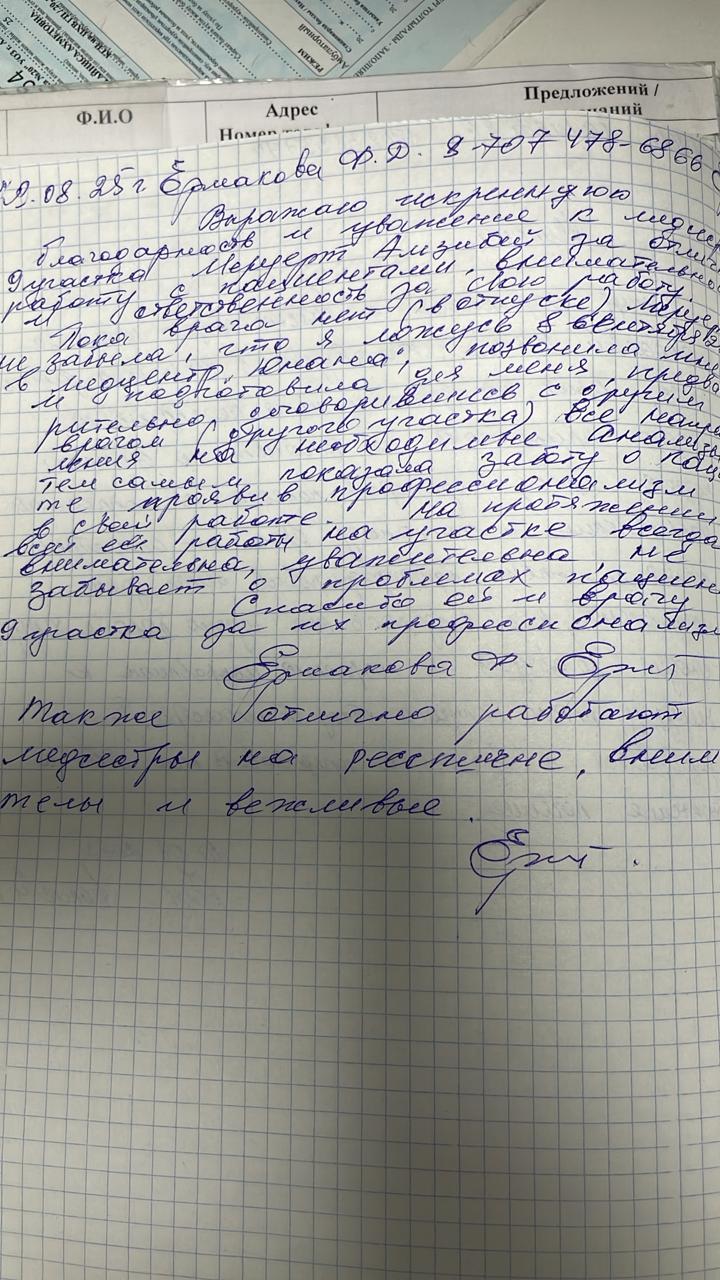 Ф.И.О
Адрес
Предложений /
.08.25г. Ермакова Ф.Д. 8-707 478-6866
Выражаю искреннюю
благодарность и уважение к медсес
9 участка Меруерт Амзибай за отли
работу с пациентами, внимательнос
и ответственность за свою работу.
Пока врача нет (в отпуске) Меруе
не забыла, что я ложусь 8 сентября
в медцентр "Юнана", позвонила мне
и подготовила для меня, предва
рительно оговорившись с другим
врачом (другого участка) все напра
ления на необходимые анализы
тем самым показала заботу о паци
те проявив профессионализм
в своей работе. На протяжении
всей её работы на участке всегда
внимательна, уважительна не
забывает о проблемах пациен
Спасибо ей и врачу
9 участка за их профессионализм
Ермакова Ф.
Также отлично работают
медсестры на ресепшене, вним
телы и вежливые.